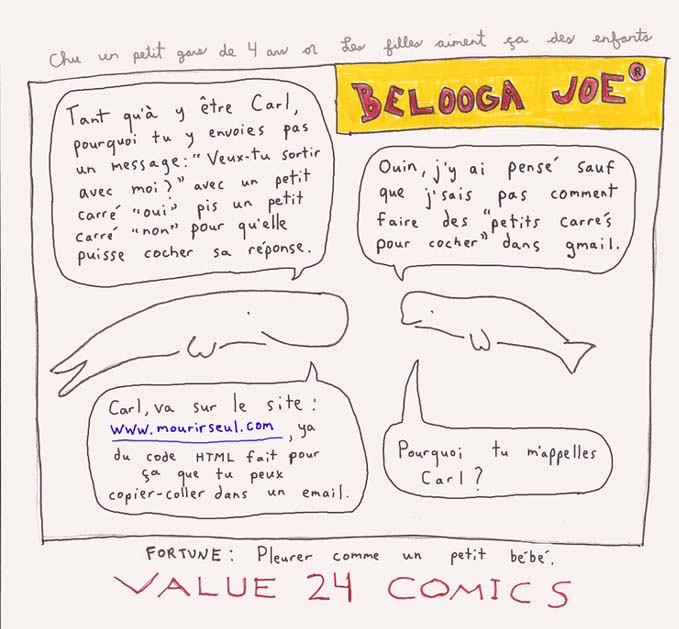 Chu un petit gars de 4 ans or Les filles aiment ça des enfants
BELOOGA JOE®
Tant qu'à y être Carl,
pourquoi tu y envoies pas
un message: "Veux-tu sortir
avec moi?" avec un petit
carré "oui" pis un petit
carré "non" pour qu'elle
puisse cocher sa réponse.
Ouin, j'y ai pensé sauf
que j'sais pas comment
faire des "petits carrés
pour cocher" dans gmail.
Carl, va sur le site:
www.mourirseul.com, ya
du code HTML fait pour
ça que tu peux
copier-coller dans un email.
Pourquoi tu m'appelles
Carl?
FORTUNE: Pleurer comme un petit bébé.
VALUE 24 COMICS